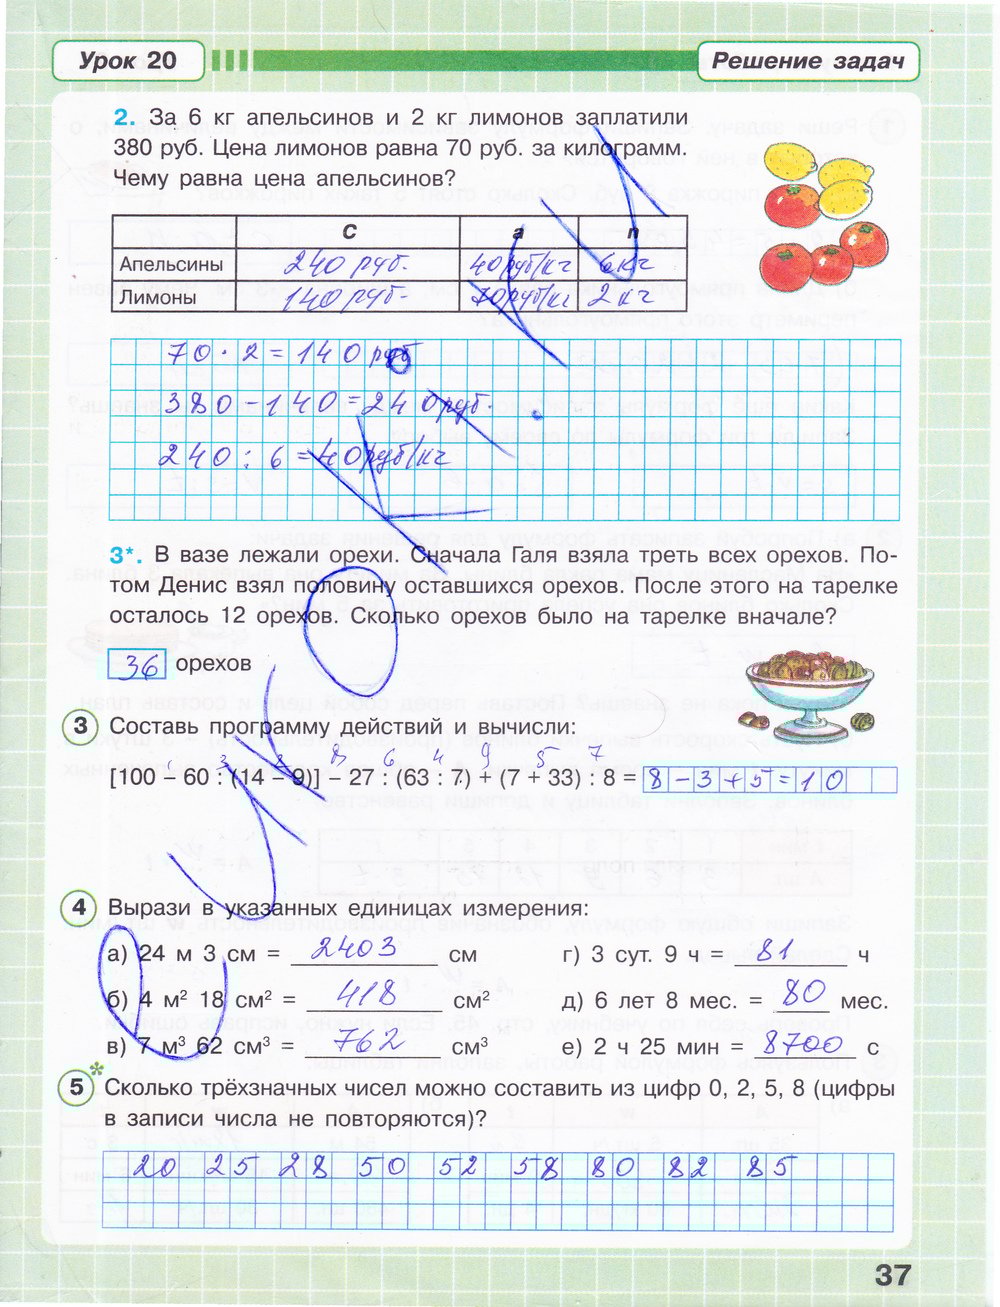 Урок 20
Решение задач
2. За 6 кг апельсинов и 2 кг лимонов заплатили
380 руб. Цена лимонов равна 70 руб. за килограмм.
Чему равна цена апельсинов?
C a n
Апельсины 240 руб. 40 руб/кг 6 кг
Лимоны 140 руб. 70 руб/кг 2 кг
70 · 2 = 140 руб
380 - 140 = 240 руб.
240 : 6 = 40 руб/кг
3*. В вазе лежали орехи. Сначала Галя взяла треть всех орехов. По-
том Денис взял половину оставшихся орехов. После этого на тарелке
осталось 12 орехов. Сколько орехов было на тарелке вначале?
36 орехов
3 Составь программу действий и вычисли:
[100 – 60 : (14 – 9)] – 27 : (63 : 7) + (7 + 33) : 8 = 8 - 3 + 5 = 10
4 Вырази в указанных единицах измерения:
а) 24 м 3 см = 2403 см
г) 3 сут. 9 ч = 81 ч
б) 4 м² 18 см² = 418 см²
д) 6 лет 8 мес. = 80 мес.
в) 7 м³ 62 см³ = 762 см³
е) 2 ч 25 мин = 8700 с
5* Сколько трёхзначных чисел можно составить из цифр 0, 2, 5, 8 (цифры
в записи числа не повторяются)?
20 25 28 50 52 58 80 82 85
37